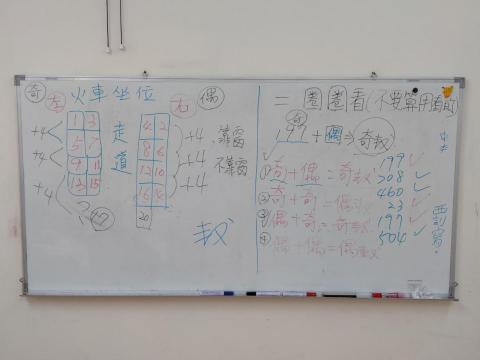 奇 左 火車坐位 右 偶
1 3 走道 4 2
5 7 8 6
9 11 12 10
13 15 16 14
20
+4
+4
+4
+4 靠窗
+4 不靠窗
+4
二 圈圈看(不要算用看的)
奇
197 + 偶 ⇒ 奇数
① 奇 + 偶 = 奇数
② 奇 + 奇 = 偶
③ 偶 + 奇 = 奇数
④ 偶 + 偶 = 偶数
199
208
460
23
197
504
要寫